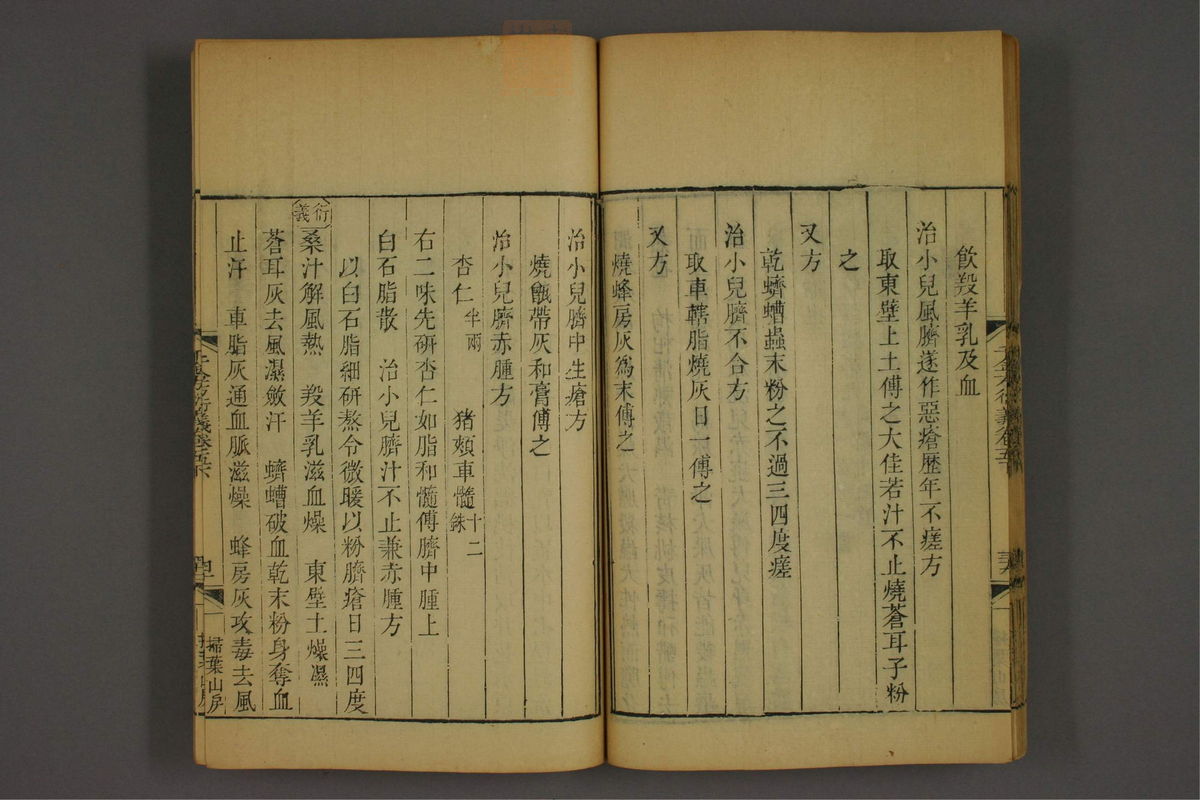 飲羖羊乳及血
治小兒風臍遂作惡瘡歷年不瘥方
取東壁上土傅之大佳若汁不止燒蒼耳子粉
之
又方
乾蠐螬蟲末粉之不過三四度瘥
治小兒臍不合方
取車轄脂燒灰日一傅之
又方
燒蜂房灰爲末傅之
治小兒臍中生瘡方
燒甑帶灰和膏傅之
治小兒臍赤腫方
杏仁半兩 猪頰車髓十二銖
右二味先研杏仁如脂和髓傅臍中腫上
白石脂散 治小兒臍汁不止兼赤腫方
以白石脂細研熬令微暖以粉臍瘡日三四度
衍義 桑汁解風熱 羖羊乳滋血燥 東壁土燥濕
蒼耳灰去風濕斂汗 蠐螬破血乾末粉身奪血
止汗 車脂灰通血脈滋燥 蜂房灰攻毒去風
千金方衍義卷五下
掃葉山房